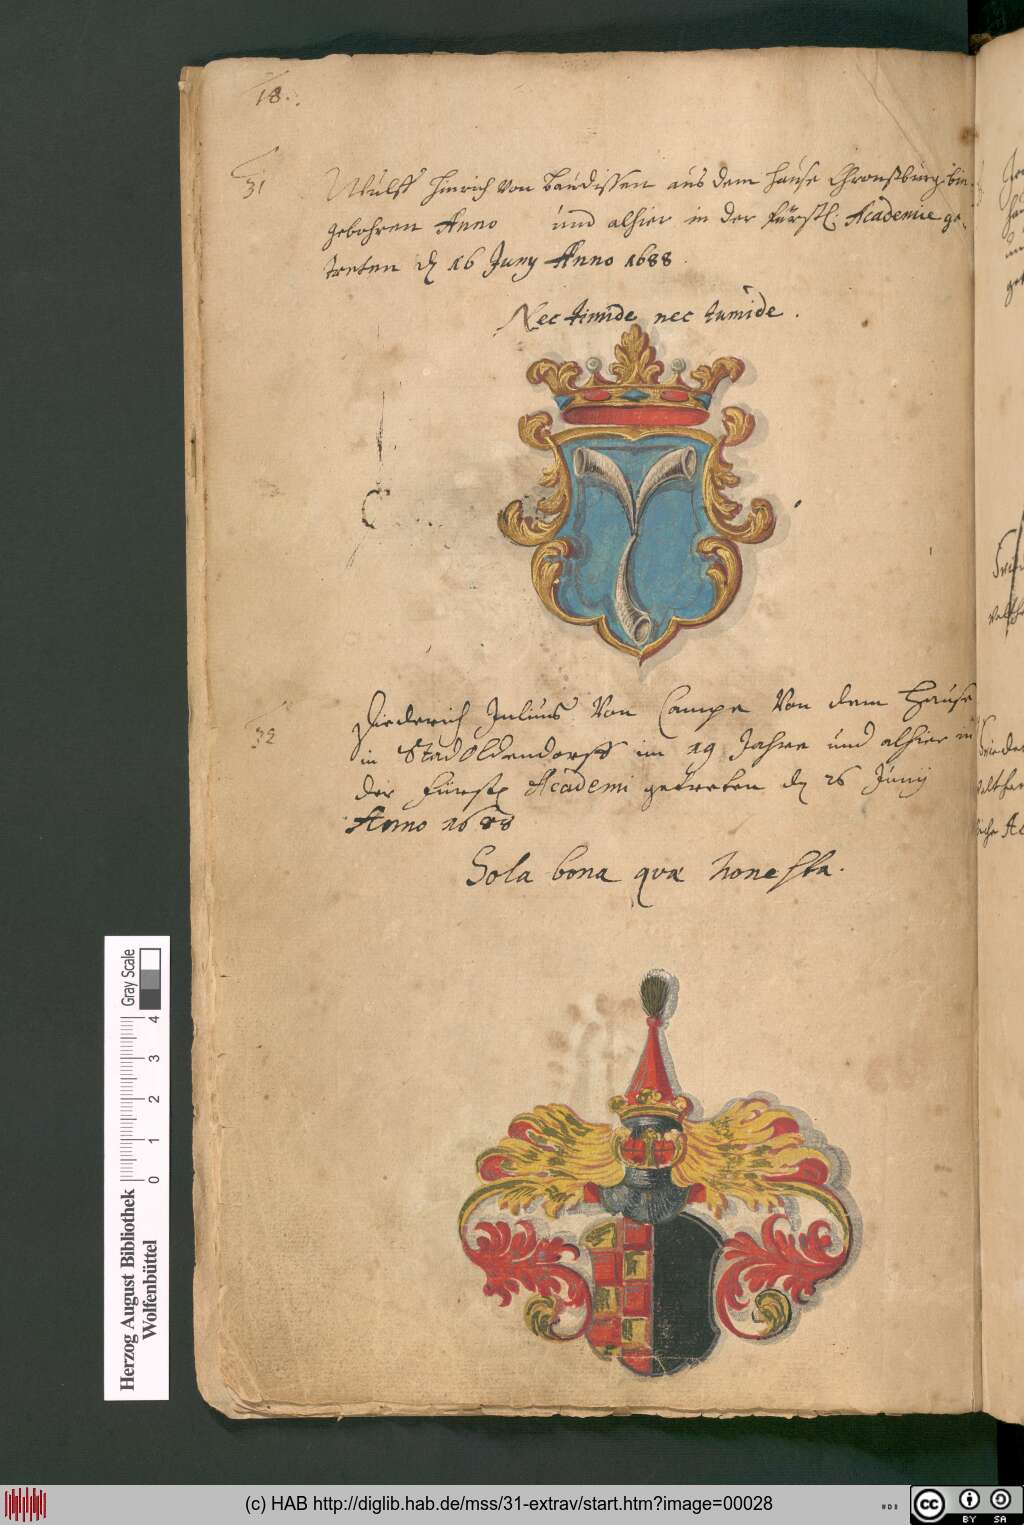 18.
31
Wulff Hinrich Von Baudissen aus dem Hause Chronsburg bin
gebohren Anno und alhier in der fürstl. Academie ge-
treten d. 16 Juny Anno 1688.
Nec timide nec tumide.
32
Diederich Julius Von Campe Von dem Hause
in StadOldendorff im 19 Jahre und alhier in
der Fürstl Academi getreten d. 26 Junij
Anno 1688
Sola bona qvæ honesta.
Herzog August Bibliothek
Wolfenbüttel
0 1 2 3 4
Gray Scale
(c) HAB http://diglib.hab.de/mss/31-extrav/start.htm?image=00028
cc BY SA